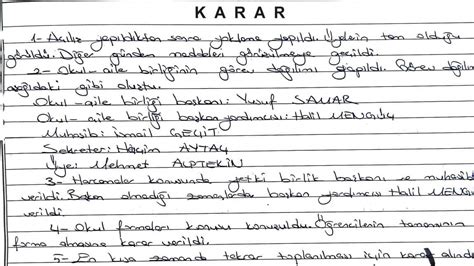 KARAR
1- Açılış yapıldıktan sonra yoklama yapıldı. Üyelerin tam olduğu
görüldü. Diğer gündem maddeleri görüşülmeye geçildi.
2- Okul-aile birliğinin görev dağılımı yapıldı. Görev dağılı
aşağıdaki gibi oluştu.
Okul-aile birliği başkanı: Yusuf
Okul-aile birliği başkan yardımcısı: Halil
Muhasib: İsmail GEÇİT
Sekreter: AYTAÇ
Üye: Mehmet ALPTEKİN
3- Harcamalar konusunda yetki birlik başkanı ve muhasib
verildi. Başkan olmadığı zamanlarda başkan yardımcısı Halil
verildi.
4- Okul formaları konusu konuşuldu. Öğrencilerin tamamının
forma almasına karar verildi.
5- En kısa zamanda tekrar toplanılması için karar alındı